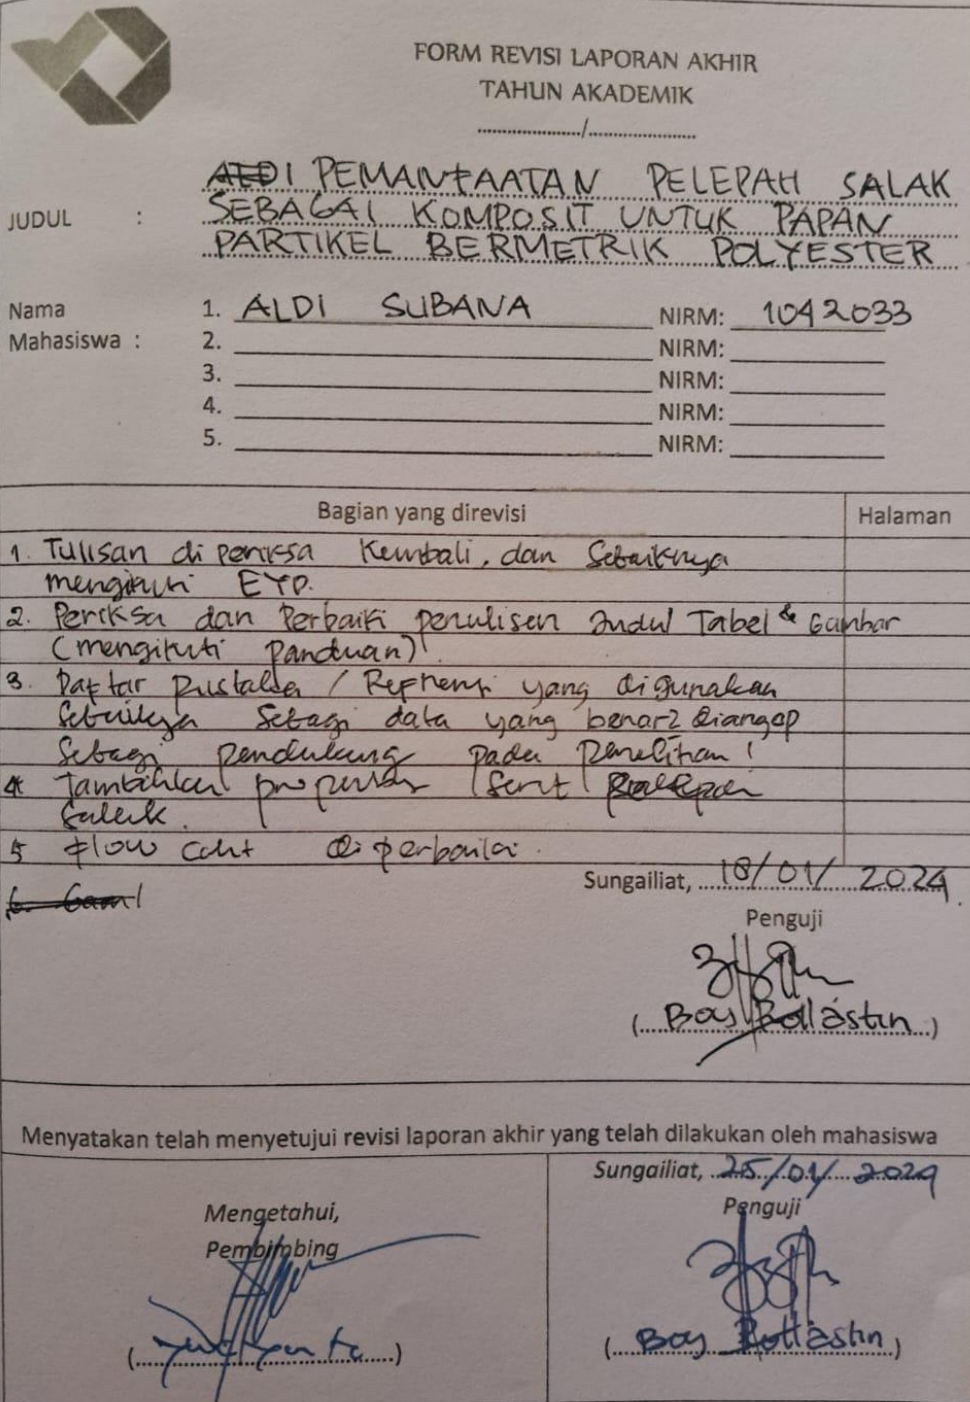 FORM REVISI LAPORAN AKHIR
TAHUN AKADEMIK
....................../......................
JUDUL : PEMANFAATAN PELEPAH SALAK
SEBAGAI KOMPOSIT UNTUK PAPAN
PARTIKEL BERMETRIK POLYESTER
Nama
Mahasiswa :
1. ALDI SUBANA NIRM: 1042033
2. NIRM:
3. NIRM:
4. NIRM:
5. NIRM:
Bagian yang direvisi Halaman
1. Tulisan di periksa Kembali, dan Sebaiknya
mengikuti EYD.
2. Periksa dan Perbaiki penulisan Judul Tabel & Gambar
(mengikuti Panduan)
3. Daftar Pustaka / Referensi yang digunakan
Sebaiknya Sebagi data yang benar2 diangap
Sebagi pendukung pada penelitian !
4. Tambahkan properties Serat
Salak.
5 flow diperbaiki.
Sungailiat, 18/01/ 2024
Penguji
(Boy Rollastin)
Menyatakan telah menyetujui revisi laporan akhir yang telah dilakukan oleh mahasiswa
Mengetahui,
Pembimbing
Sungailiat, 25/01/ 2024
Penguji
(Boy Rollastin)